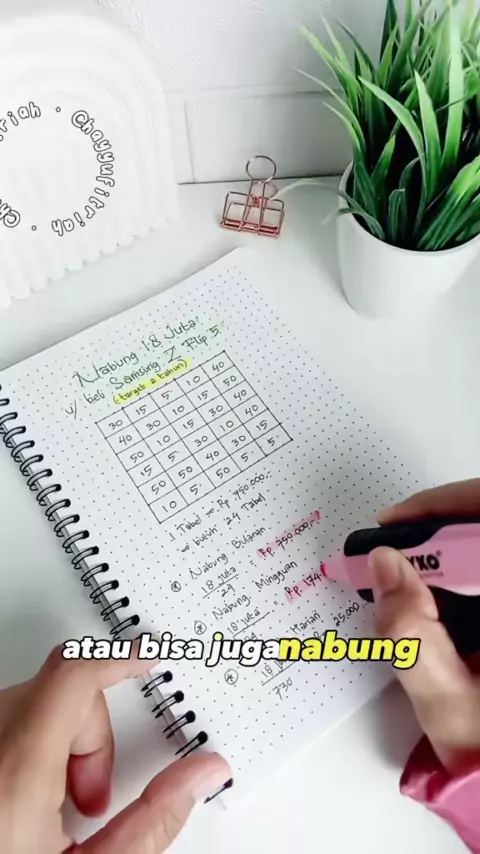 Chayyufitriah • Ch
riah •
Nabung 18 Juta
u/ beli Samsung Z Flip 5.
(target 2 tahun)
30 15 5 10 40
40 30 10 15 50
50 10 15 30 40
15 5 30 10 40
50 50 40 30 15
10 5 50 5 5
1 Tabel = Rp 750.000,-
butuh 24 Tabel
Nabung Bulanan
18 Juta = Rp. 750.000,-
24
Nabung Mingguan
18 Juta = Rp. 174
Harian
18 25.000
730
atau bisa juga nabung